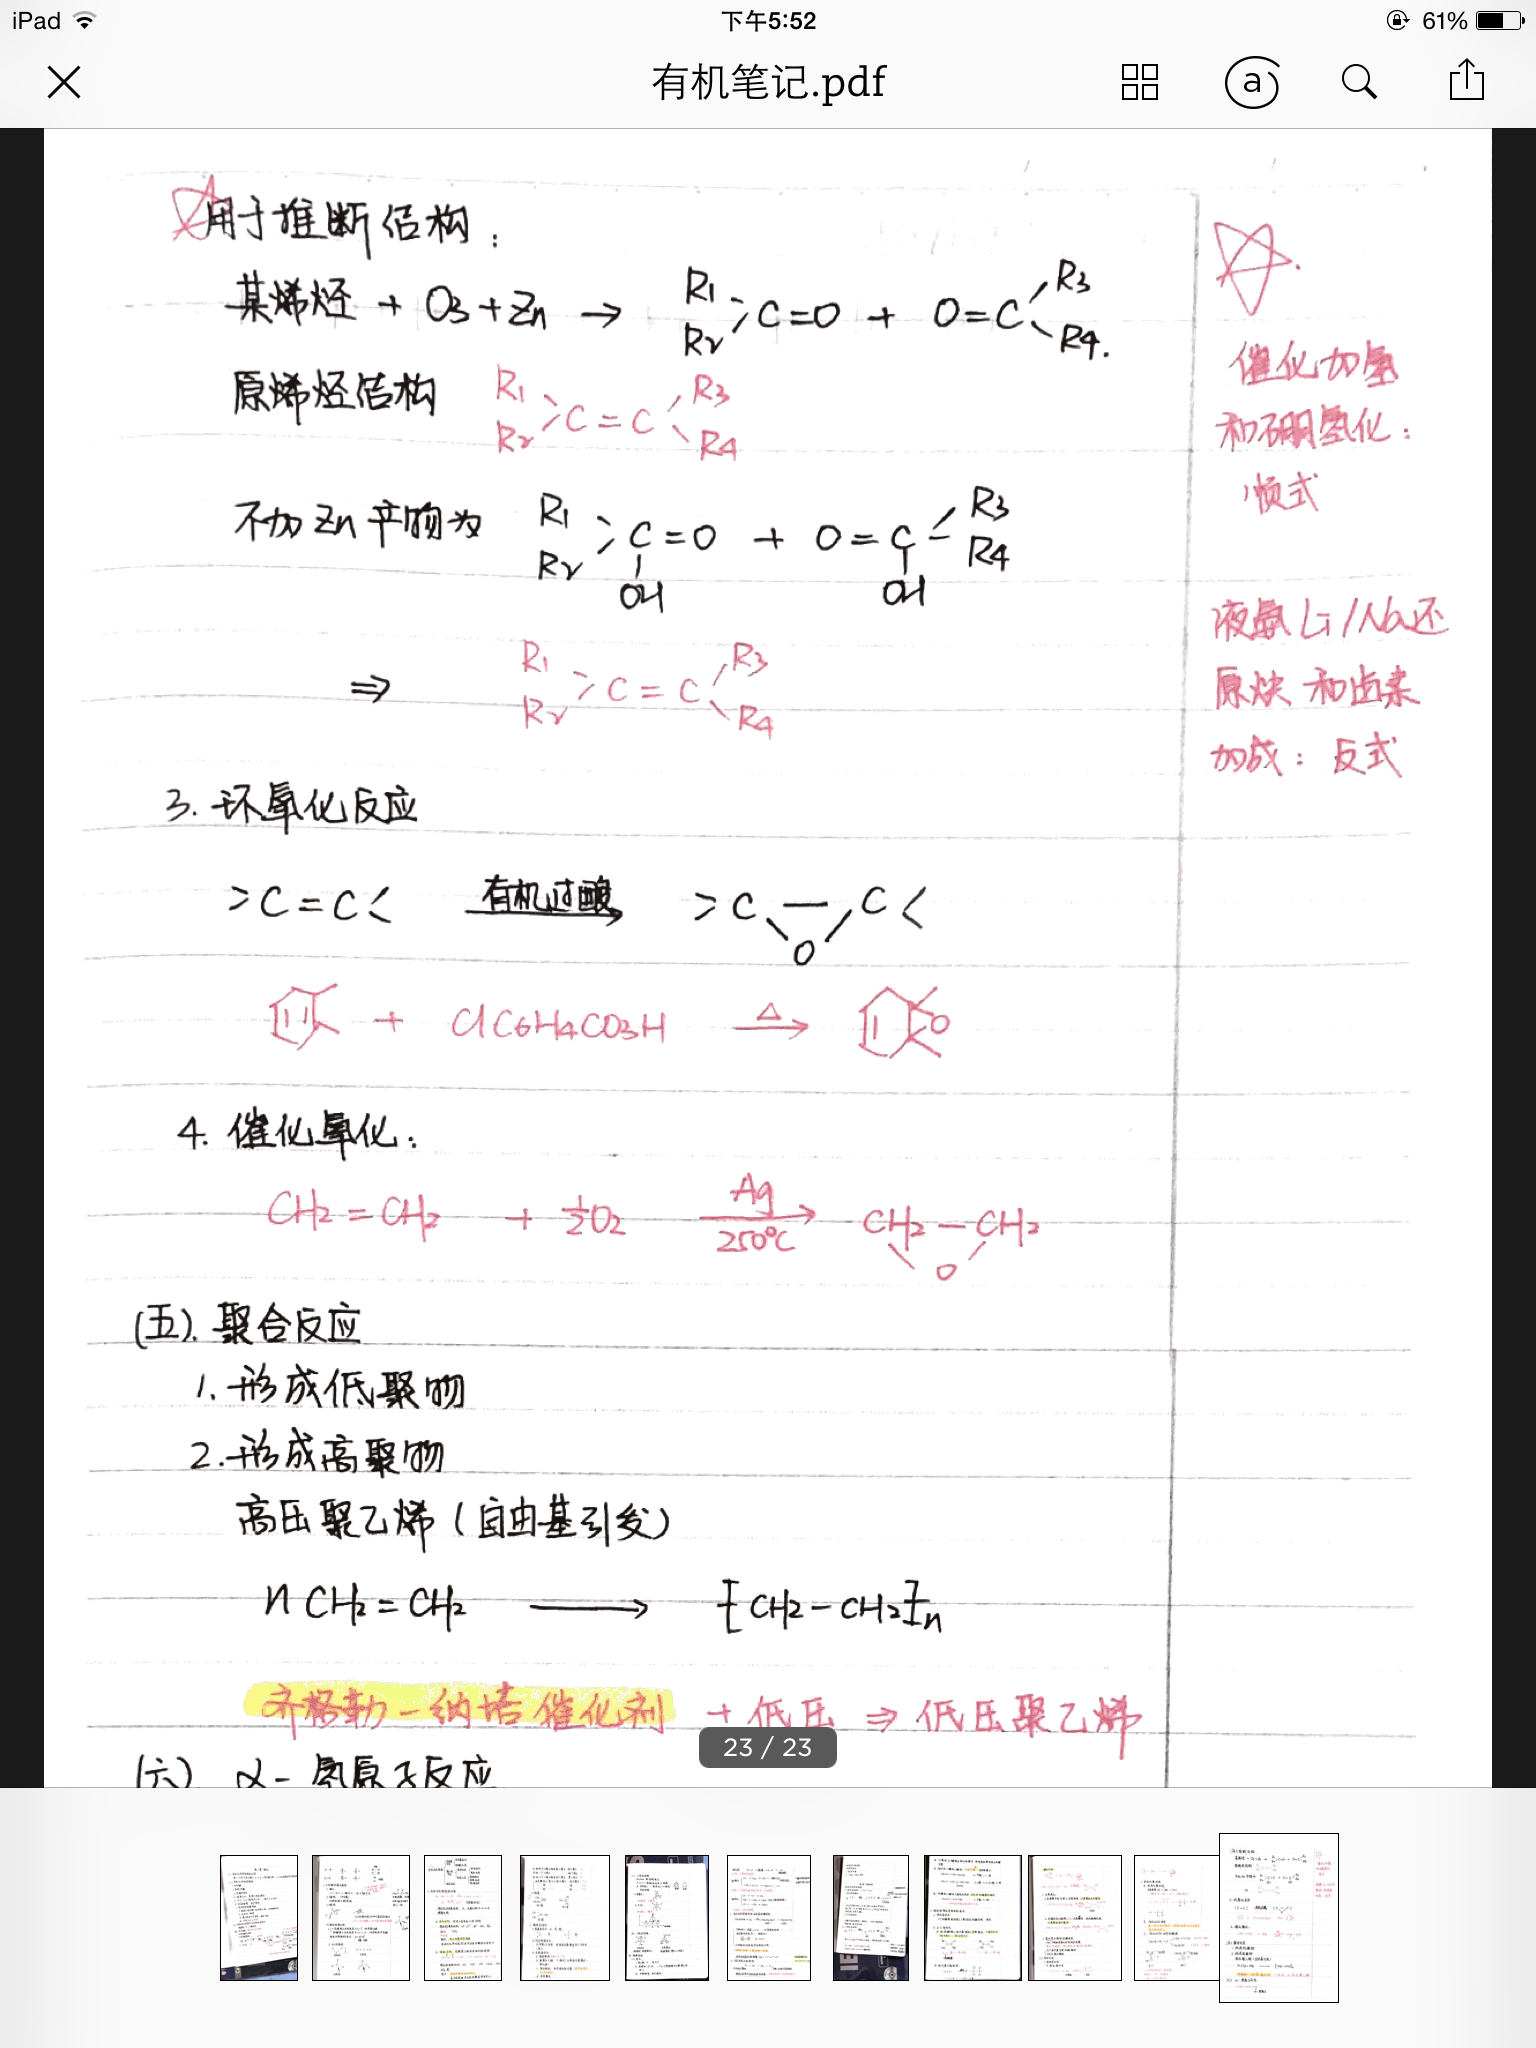 iPad 下午5:52 61%
有机笔记.pdf
用于推断结构：
某烯烃 + O3 + Zn → R1 R2 >C=O + O=C R3 R4.
原烯烃结构 R1 R2 >C=C R3 R4
不加 Zn 产物为 R1 R2 >C=O + O=C R3 R4
OH OH
⇒ R1 R2 >C=C R3 R4
3. 环氧化反应
>C=C< 有机过酸 >C—C<
O
+ ClC6H4CO3H △ → O
4. 催化氧化：
CH2=CH2 + 1/2 O2 Ag 250°C → CH2—CH2
O
(五). 聚合反应
1. 形成低聚物
2. 形成高聚物
高压聚乙烯（自由基引发）
n CH2=CH2 ⟶ [CH2-CH2]n
齐格勒-纳塔催化剂 + 低压 ⇒ 低压聚乙烯
(六) α-氢原子反应
催化加氢
和硼氢化：
顺式
液氨 Li/Na还
原炔和卤素
加成：反式
23 / 23